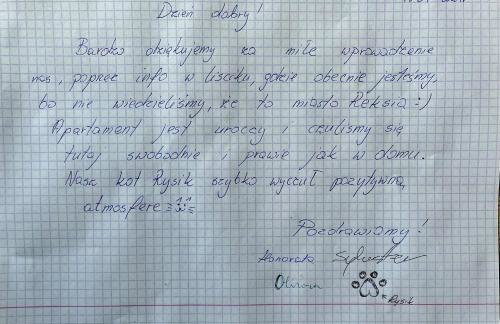 Dzień dobry!
Bardzo dziękujemy za miłe wprowadzenie
nas, poprzez info w liściku, gdzie obecnie jesteśmy,
bo nie wiedzieliśmy, że to miasto Reksia :)
Apartament jest uroczy i czuliśmy się
tutaj swobodnie i prawie jak w domu.
Nasz kot Rysik szybko wyczuł pozytywną
atmosferę
Pozdrawiamy!
Honorata Sylwester
Rysik